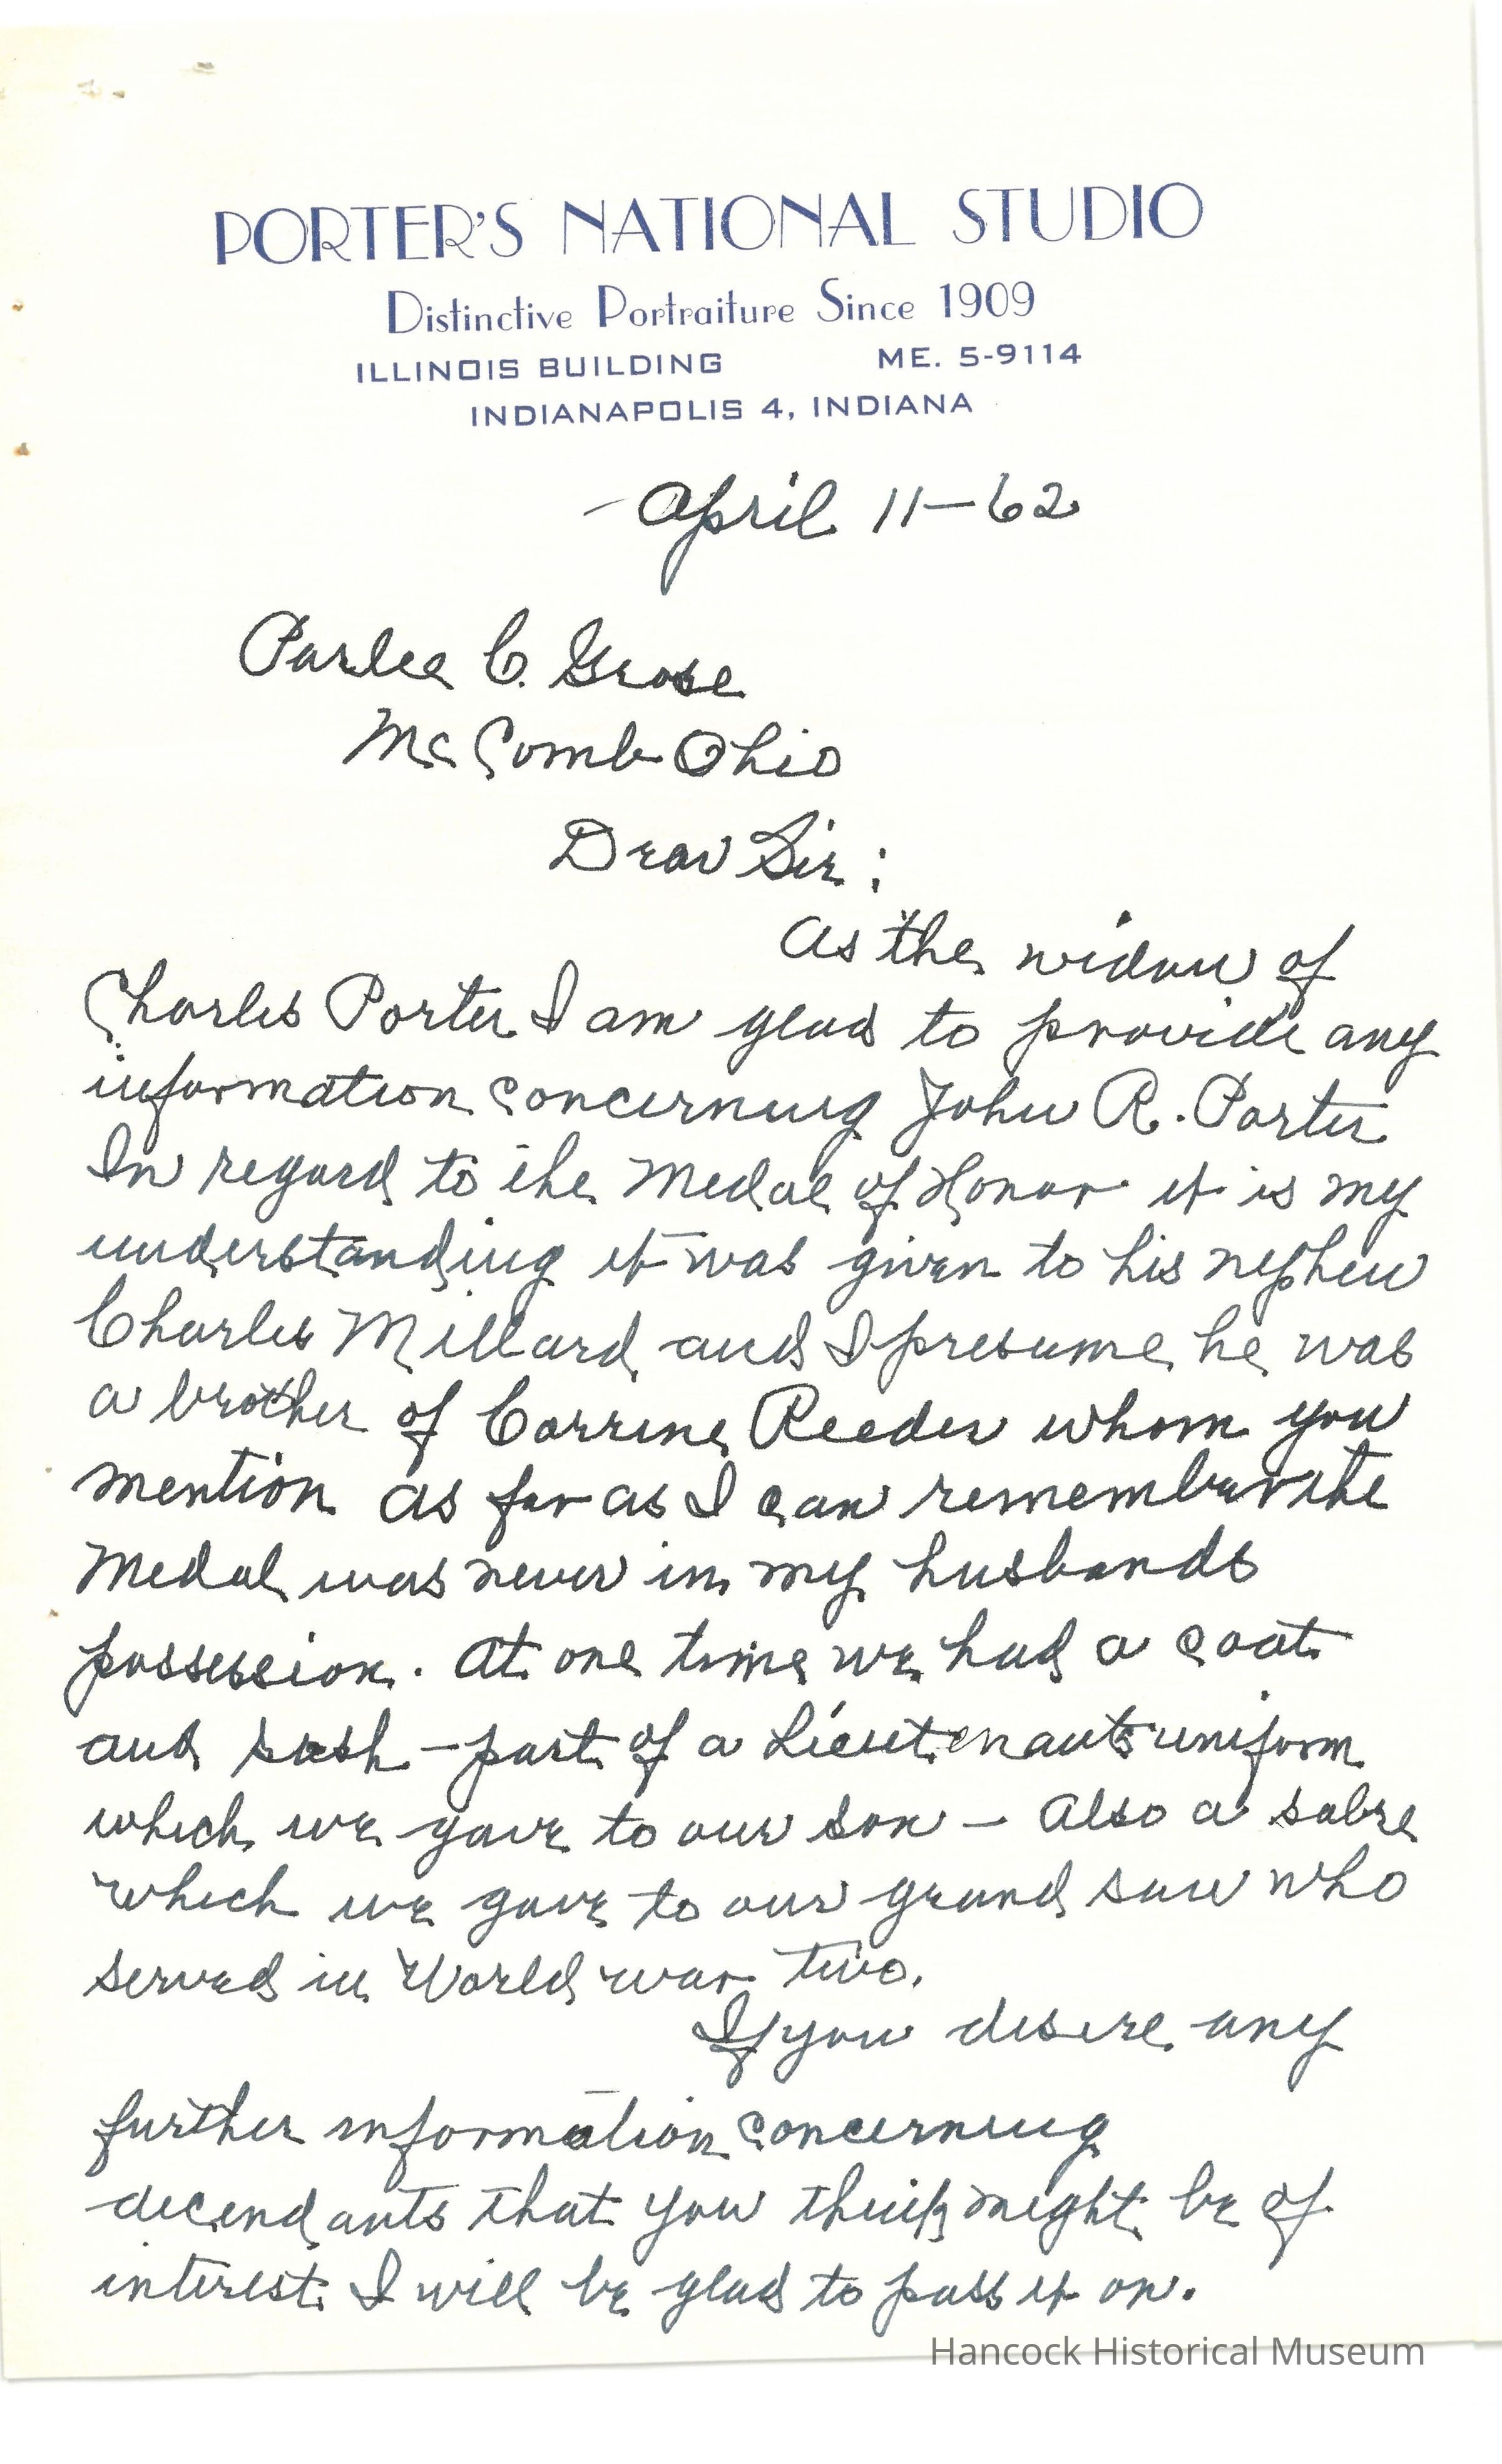 PORTER'S NATIONAL STUDIO
Distinctive Portraiture Since 1909
ILLINOIS BUILDING ME. 5-9114
INDIANAPOLIS 4, INDIANA
April 11-62
Parlee C. Grose
Mc Comb Ohio
Dear Sir:
As the widow of
Charles Porter I am glad to provide any
information concerning John R. Porter
In regard to the Medal of Honor it is my
understanding it was given to his nephew
Charles Millard and I presume he was
a brother of Corrine Reeder whom you
mention as far as I can remember the
Medal was never in my husbands
possession. At one time we had a coat
and sash - part of a Lieutenants uniform
which we gave to our son - Also a sabre
which we gave to our grand son who
served in World war two.
If you desire any
further information concerning
decendants that you think might be of
interest I will be glad to pass it on.
Hancock Historical Museum